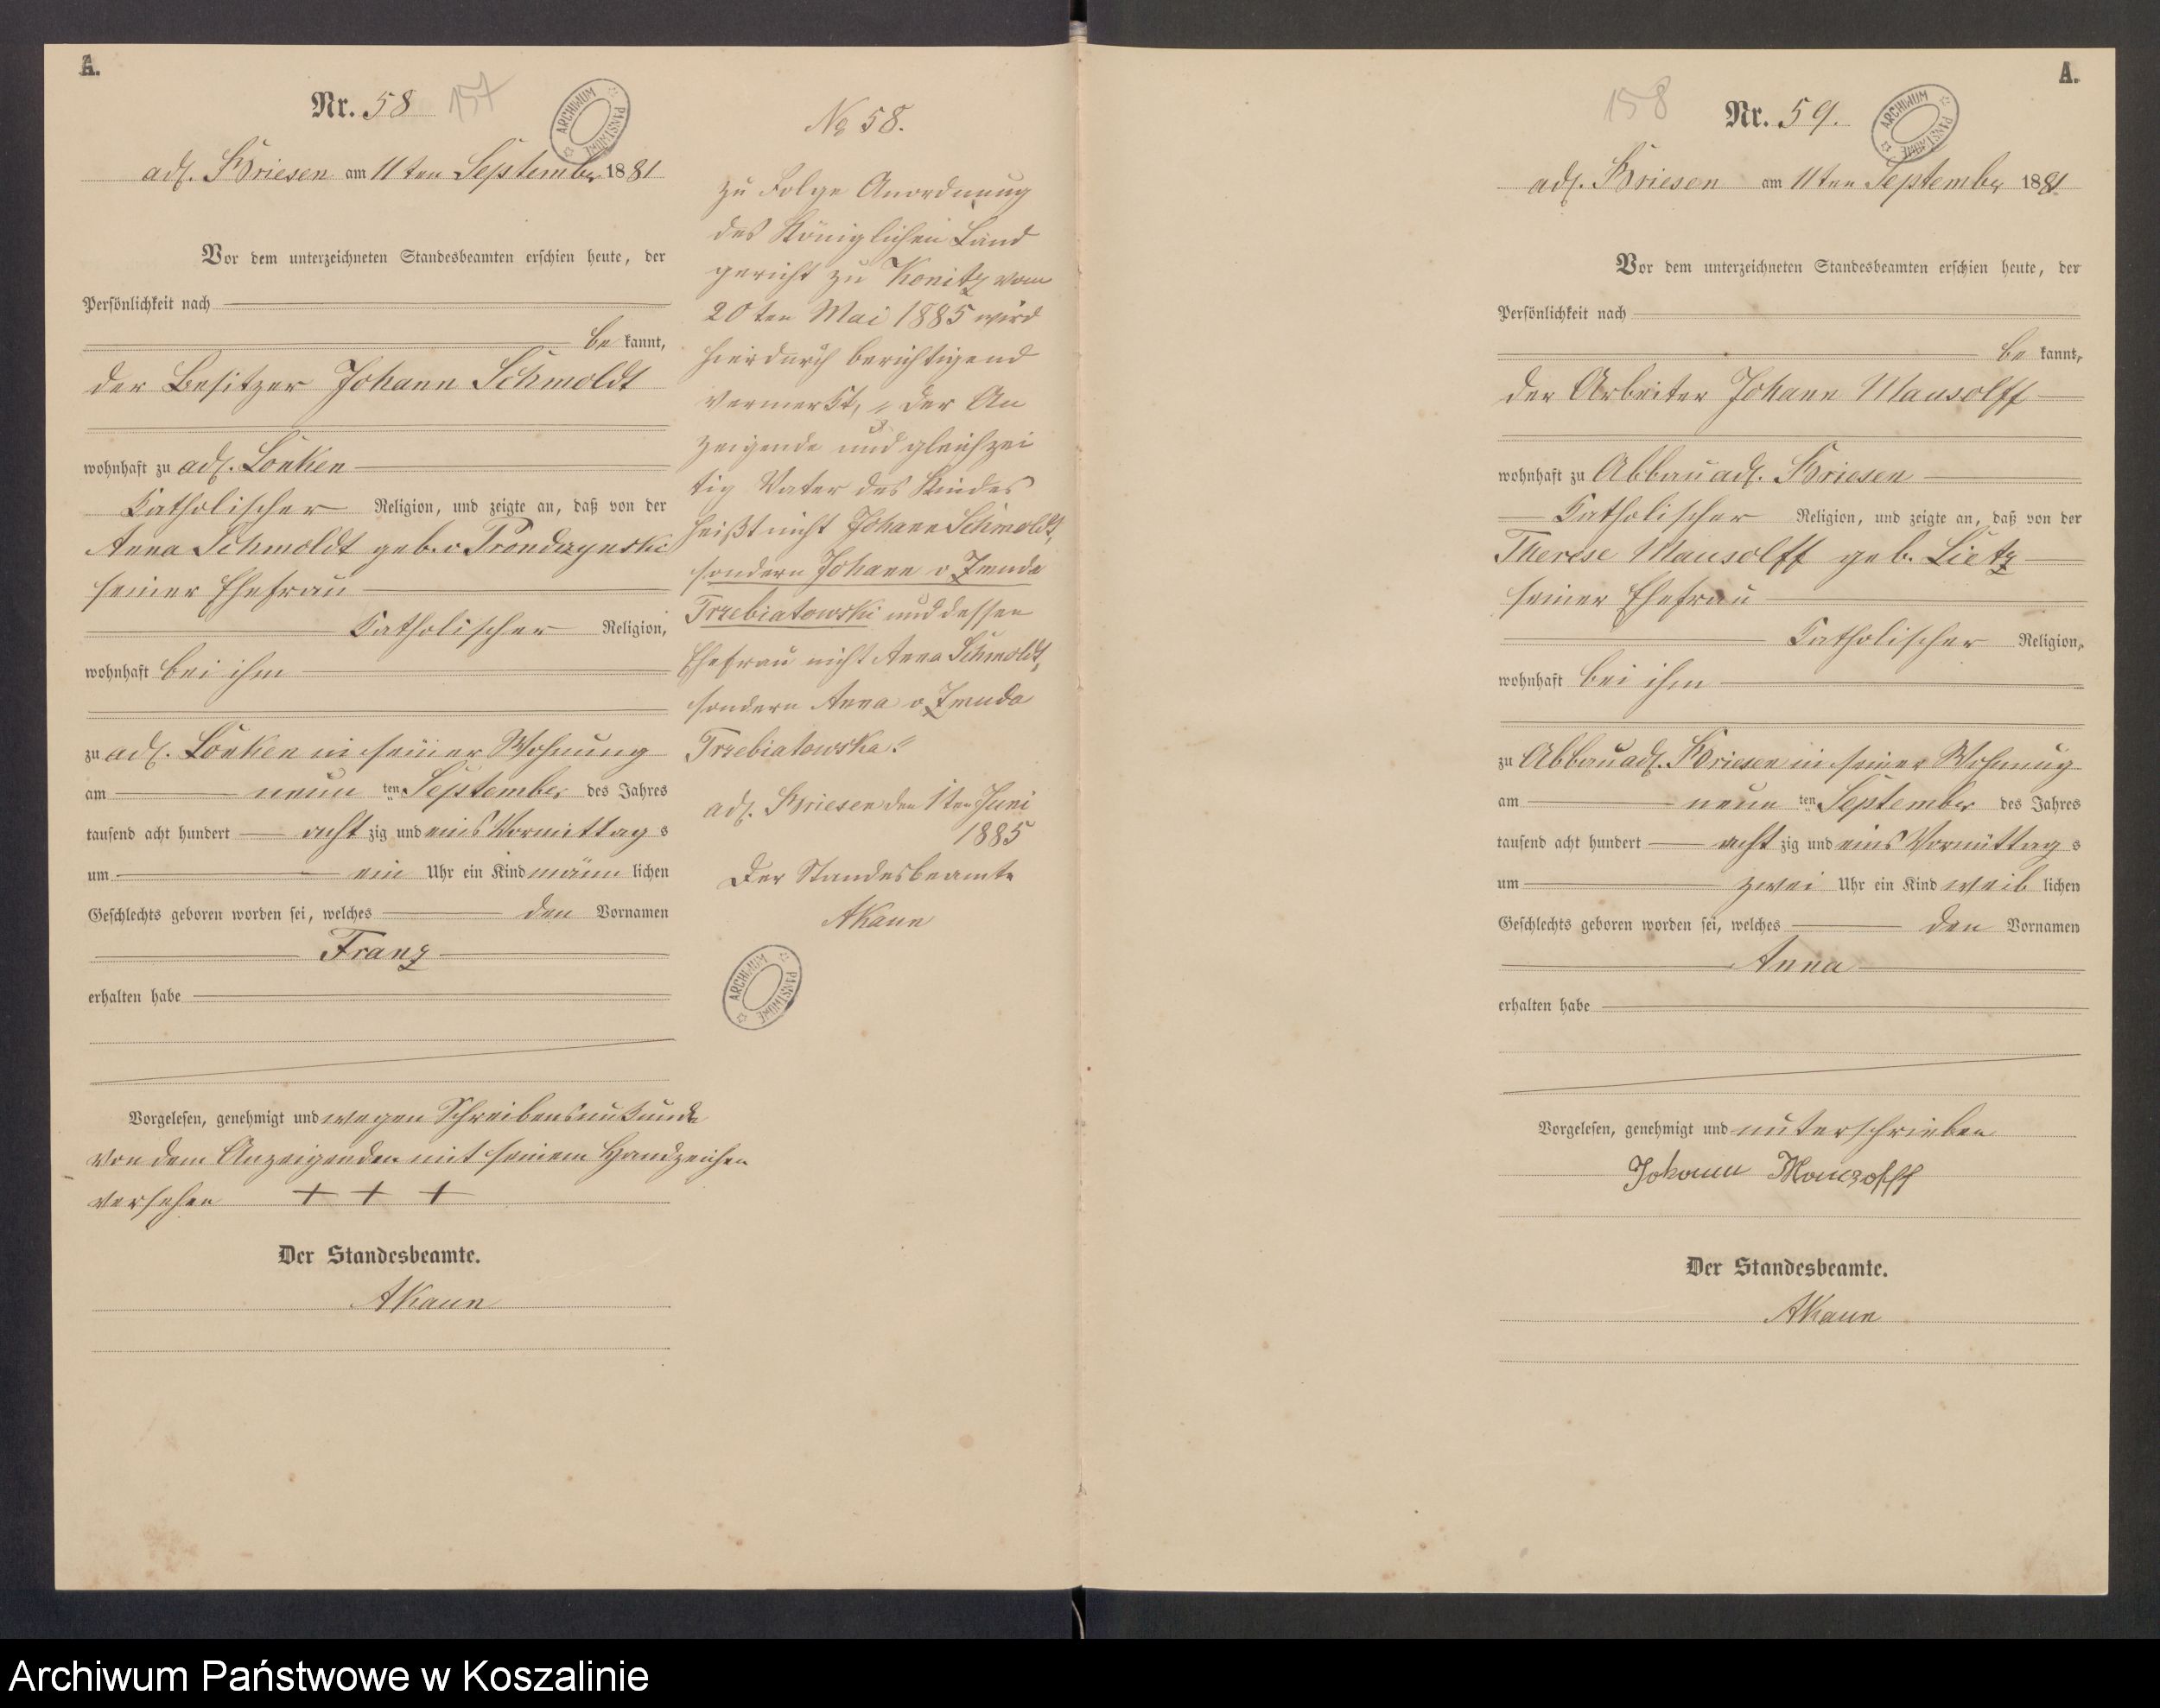 A.
Nr. 58 157
ARCHIWUM PAŃSTWOWE
adl. Briesen am 11ten September 1881
Vor dem unterzeichneten Standesbeamten erschien heute, der
Persönlichkeit nach
be kannt,
der Besitzer Johann Schmoldt
wohnhaft zu adl. Lonken
Katholischer Religion, und zeigte an, daß von der
Anna Schmoldt geb. v Prondzynski
seiner Ehefrau
Katholischer Religion,
wohnhaft bei ihm
zu adl. Lonken in seiner Wohnung
am neun ten September des Jahres
tausend acht hundert acht zig und eins Vormittag s
um ein Uhr ein Kind männ lichen
Geschlechts geboren worden sei, welches den Vornamen
Franz
erhalten habe
Vorgelesen, genehmigt und wegen Schreibensunkunde
von dem Anzeigenden mit seinem Handzeichen
versehen + + +
Der Standesbeamte.
AKaun
No 58.
zu Folge Anordnung
des Königlichen Land
gericht zu Konitz vom
20ten Mai 1885 wird
hierdurch berichtigend
vermerkt, „der An
zeigende und gleichzei
tig Vater des Kindes
heißt nicht Johann Schmoldt,
sondern Johann v Zmuda
Trzebiatowski und dessen
Ehefrau nicht Anna Schmoldt,
sondern Anna v Zmuda
Trzebiatowska."
adl. Briesen den 1ten Juni
1885
Der Standesbeamte
AKaun
ARCHIWUM PAŃSTWOWE
A.
158 Nr. 59.
ARCHIWUM PAŃSTWOWE
adl. Briesen am 11ten September 1881
Vor dem unterzeichneten Standesbeamten erschien heute, der
Persönlichkeit nach
be kannt,
der Arbeiter Johann Mausolff
wohnhaft zu Abbau adl. Briesen
Katholischer Religion, und zeigte an, daß von der
Therese Mausolff geb. Lietz
seiner Ehefrau
Katholischer Religion,
wohnhaft bei ihm
zu Abbau adl. Briesen in seiner Wohnung
am neun ten September des Jahres
tausend acht hundert acht zig und eins Vormittag s
um zwei Uhr ein Kind weib lichen
Geschlechts geboren worden sei, welches den Vornamen
Anna
erhalten habe
Vorgelesen, genehmigt und unterschrieben
Johann Mauzolff
Der Standesbeamte.
AKaun
Archiwum Państwowe w Koszalinie